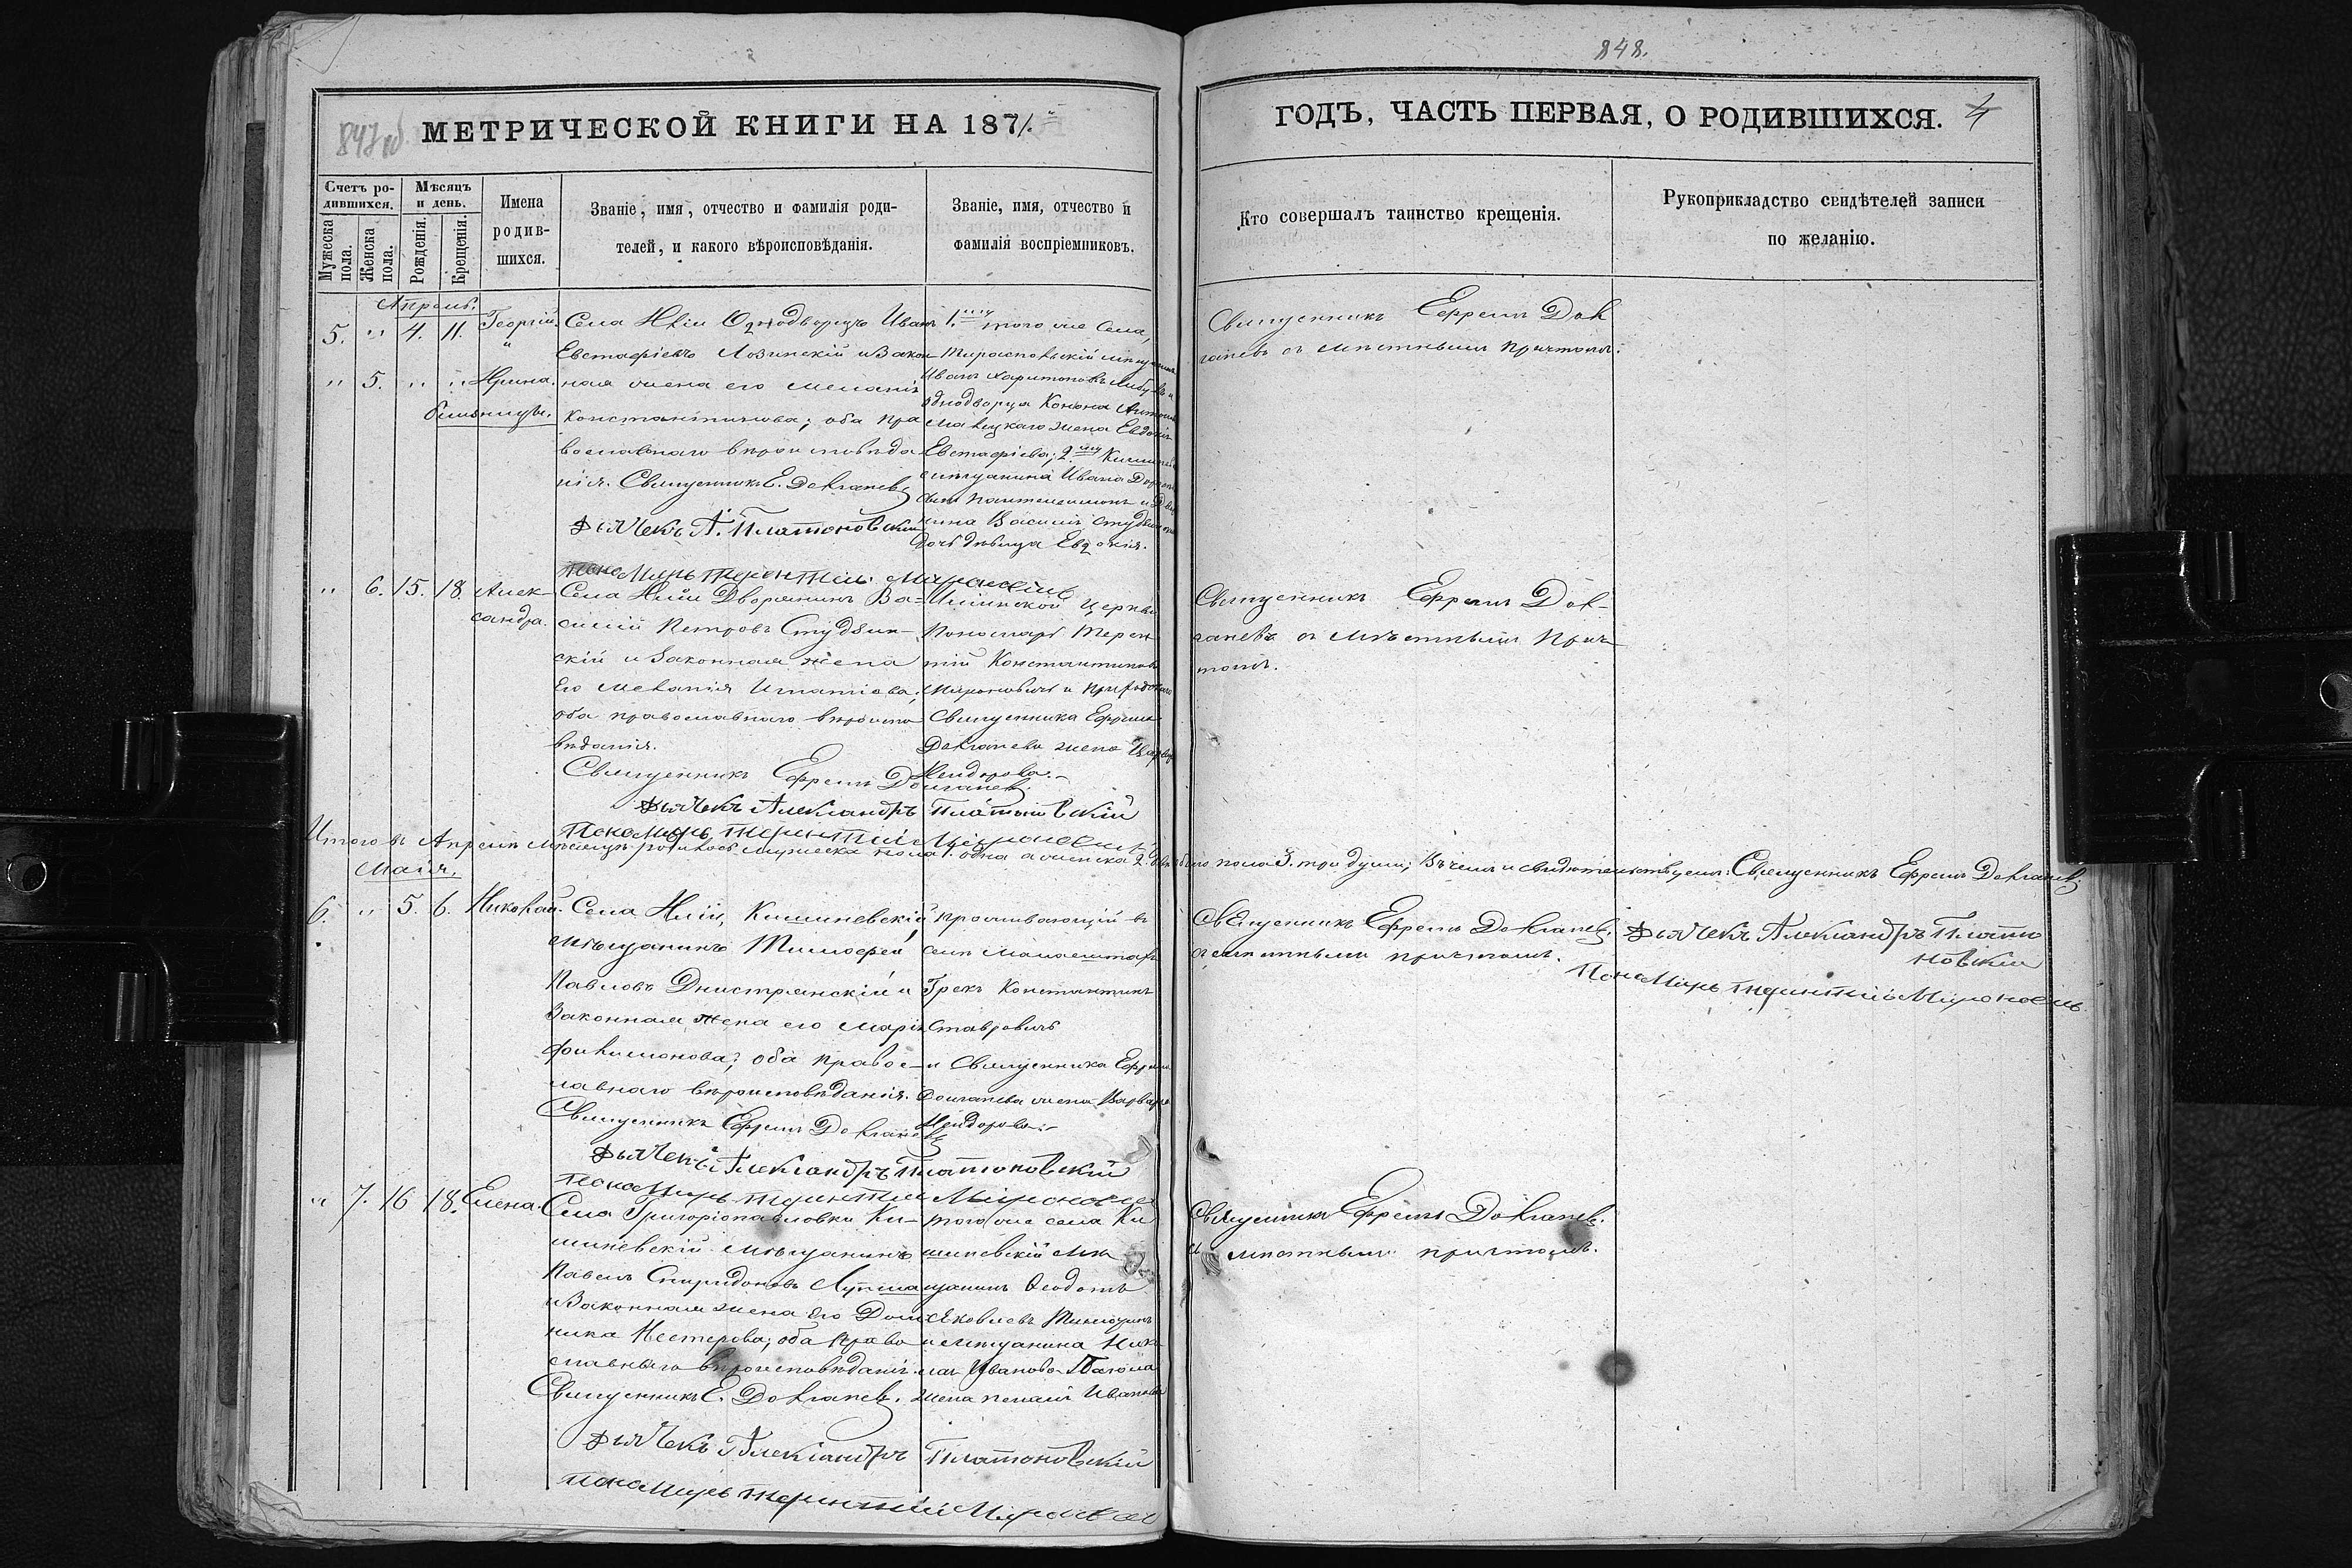 848.
847об.
МЕТРИЧЕСКОЙ КНИГИ НА 1871.
ГОДЪ, ЧАСТЬ ПЕРВАЯ, О РОДИВШИХСЯ. 4
Счетъ ро-
дившихся.
Мужеска
пола.
Женска
пола.
Мѣсяцъ
и день.
Рожденія.
Крещенія.
Имена
родив-
шихся.
Званіе, имя, отчество и фамилія роди-
телей, и какого вѣроисповѣданія.
Званіе, имя, отчество и
фамилія воспріемниковъ.
Кто совершалъ таинство крещенія.
Рукоприкладство свидѣтелей записи
по желанію.
Апрель.
5. " 4. 11. Георгій.
" 5. " " Ирина.
близницы.
Села Иліи Однодворецъ Иванъ
Евстафіевъ Лозинскій и Закон
ная жена его Меланія
Константинова; оба пра
вославнаго вѣроисповѣда
нія. Священникъ Е. Долганевъ
Дьячекъ А. Платоновскій
Пономарь Терентій Мироновичъ
1. того же Села,
Тираспольскій мещанинъ
Иванъ Харитоновъ
однодворца Конона
жена Евдокія
Евстафіева; 2.
мещанина Ивана
сынъ Пантелеимонъ и
Василія
дочь девица Евдокія.
Священникъ Ефремъ Дол
ганевъ съ местнымъ причтомъ.
" 6. 15. 18. Алек-
сандра.
Села Иліи Дворянинъ Ва-
силій Петровъ Студзин-
скій и Законная жена
Его Меланія Игнатіева;
оба православнаго вѣроиспо
вѣданія.
Священникъ Ефремъ Долганевъ
Дьячекъ Александръ Платоновскій
Пономарь Терентій Мироновичъ
Илiинской Церкви
Пономарь Терен
тій Константиновъ
Мироновичъ и Приходскаго
Священника Ефрема
Долганева жена Варвара
Священникъ Ефремъ Дол-
ганевъ съ мѣстнымъ Прич
томъ.
Итого въ Апреле Месяце родилось мужеска пола 1. одна а женска 2. две обоего пола 3. три души; Въ чемъ и свидетельствуемъ: Священникъ Ефремъ Долганевъ
Маія.
6. " 5. 6. Николай.
Села Иліи, Кишиневскій
мѣщанинъ Тимофей
Павловъ Днистрянскій и
Законная жена его Марія
Филимонова; оба правос-
лавнаго вѣроисповѣданія.
Священникъ Ефремъ Долганевъ
Дьячекъ Александръ Платоновскій
Пономарь Терентій Мироновичъ
проживающій въ
селе
Грекъ Константинъ
Ставровичъ
и Священника Ефрема
Долганева жена Варвара
Священникъ Ефремъ Долганевъ
съ местнымъ причтомъ.
Дьячекъ Александръ Плато
новскій
Пономарь Терентій Мироновичъ
" 7. 16 18. Елена.
Села Григоріопавловки Ки-
шиневскій мѣщанинъ
Павелъ Спиридоновъ
и Законная жена Его Дом
ника Нестерова; оба право
славнаго вѣроисповѣданія.
Священникъ Е. Долганевъ.
Дьячекъ Александръ Платоновскій
Пономарь Терентій Мироновичъ
того же села Ки
шиневскій ме
щанинъ Ѳеодотъ
Яковлевъ
и мещанина
Иванова
жена Иванова
Священникъ Ефремъ Долганевъ.
съ местнымъ причтомъ.